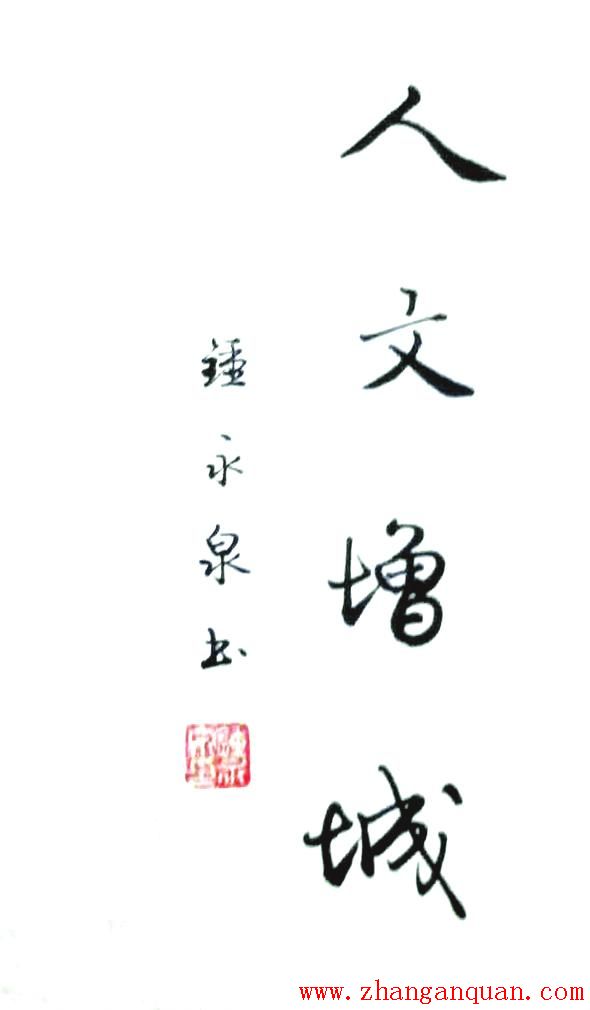 人文增城
鍾永泉书
www.zhanganquan.com